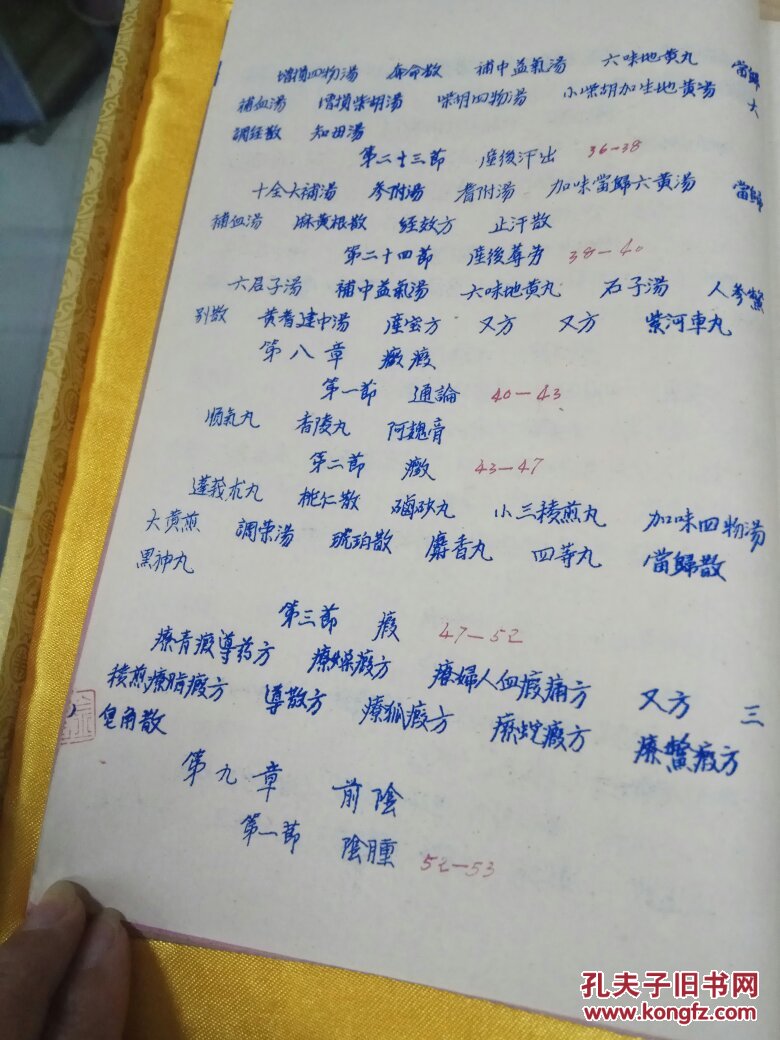 增損四物湯 奪命散 補中益氣湯 六味地黄丸 當歸
補血湯 增損柴胡湯 柴胡四物湯 小柴胡加生地黄湯 大
調経散 知母湯
第二十三節 産後汗出 36-38
十全大補湯 参附湯 耆附湯 加味當歸六黄湯 當歸
補血湯 麻黄根散 経效方 止汗散
第二十四節 産後蓐劳 38-40
六君子湯 補中益氣湯 六味地黄丸 石子湯 人参鱉
别散 黄耆建中湯 産宝方 又方 又方 紫河車丸
第八章 癥瘕
第一節 通論 40-43
肠氣丸 香陵丸 阿魏膏
第二節 癥 43-47
蓬莪朮丸 桃仁散 硇砂丸 小三稜煎丸 加味四物湯
大黄煎 調荣湯 琥珀散 麝香丸 四等丸 當歸散
黑神丸
第三節 瘕 47-52
療青瘕導药方 療燥瘕方 療婦人血瘕痛方 又方 三
稜煎療脂瘕方 導散方 療狐瘕方 療蛇瘕方 療鱉瘕方
皂角散
第九章 前陰
第一節 陰腫 52-53
孔夫子旧书网
www.kongfz.com